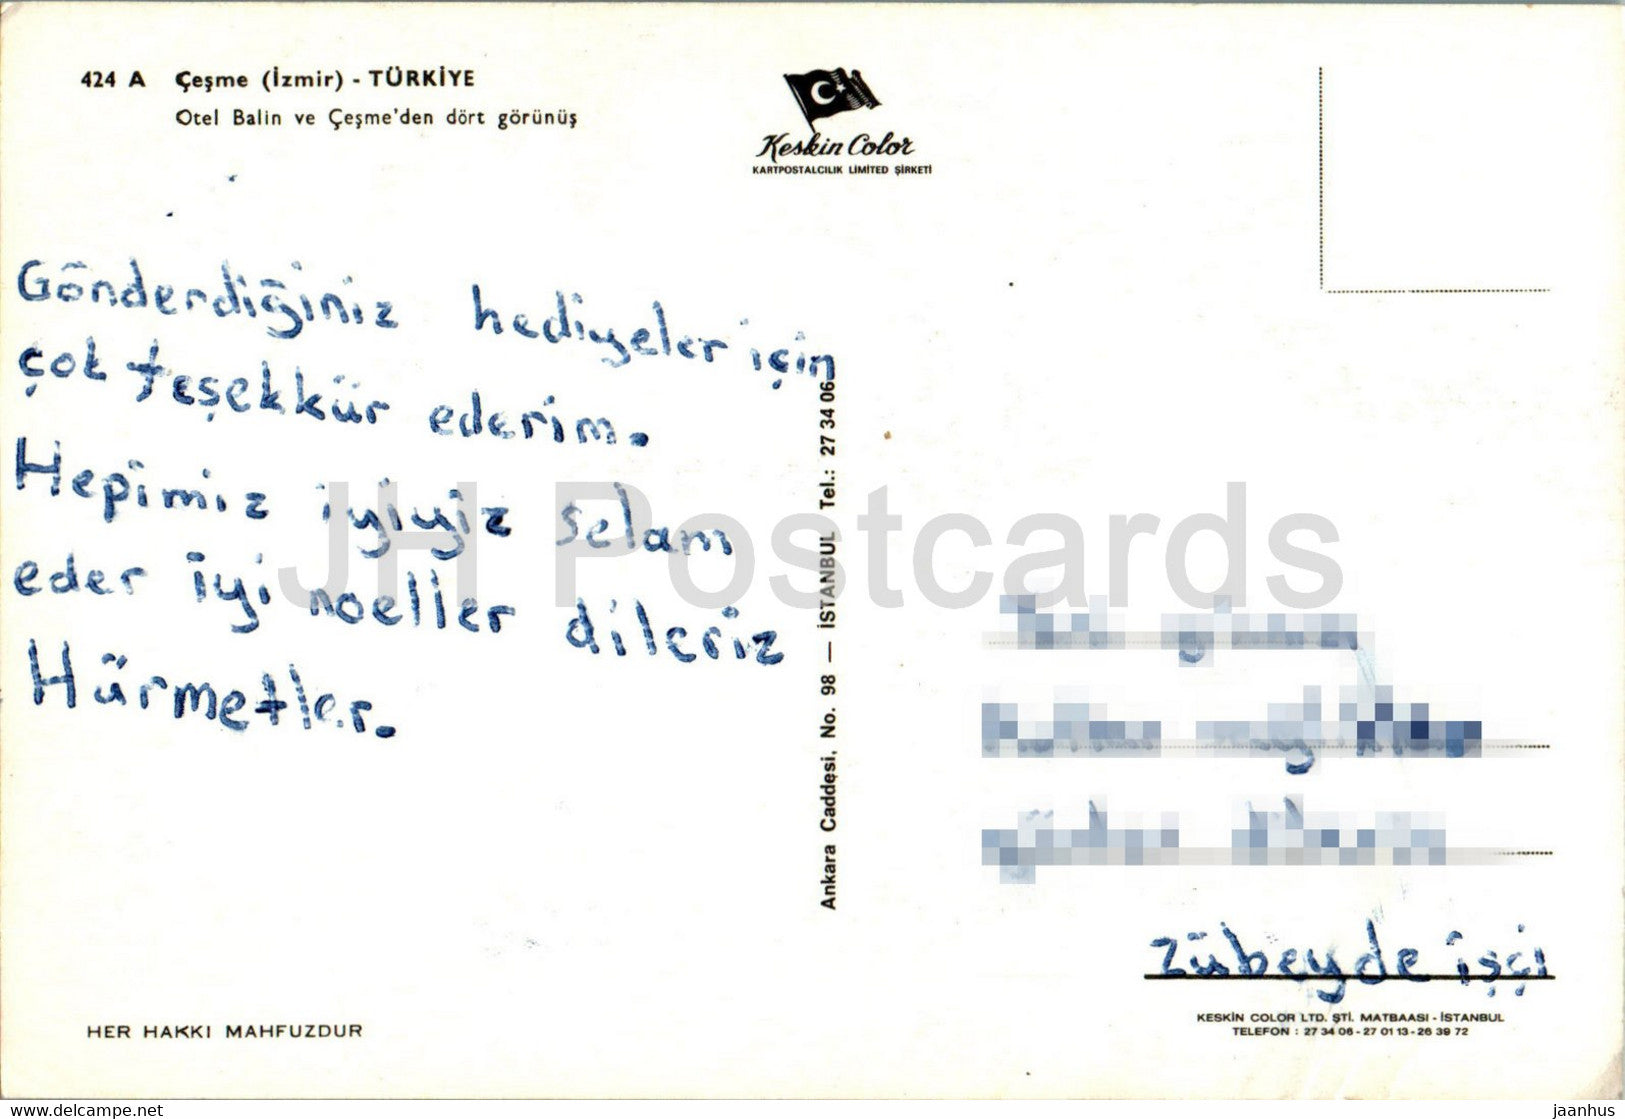 424 A Çeşme (İzmir) - TÜRKİYE
Otel Balin ve Çeşme'den dört görünüş
Keskin Color
KARTPOSTALCILIK LİMİTED ŞİRKETİ
Gönderdiğiniz hediyeler için
çok teşekkür ederim.
Hepimiz iyiyiz selam
eder iyi noeller dileriz
Hürmetler.
Ankara Caddesi, No. 98 — İSTANBUL Tel.: 27 34 06
JH Postcards
Zübeyde işçi
KESKİN COLOR LTD. ŞTİ. MATBAASI - İSTANBUL
TELEFON : 27 34 06 - 27 01 13 - 26 39 72
HER HAKKI MAHFUZDUR
www.delcampe.net
jaanhus